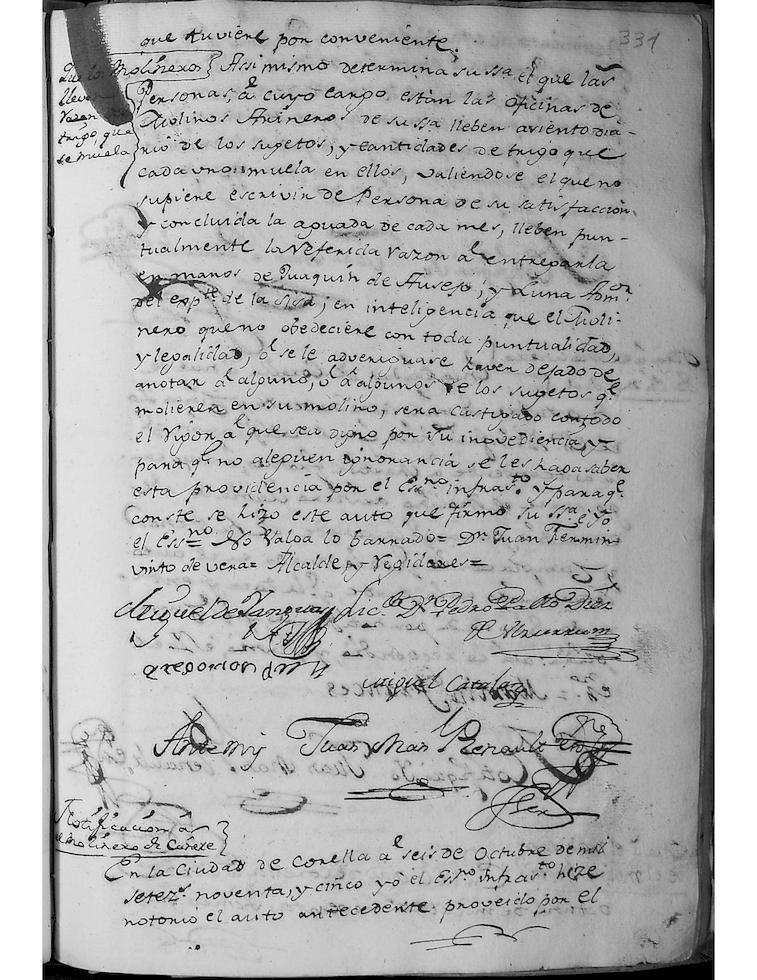 331
que tuviere por conveniente.
Que los Molineros
lleven
razon
trigo, que
se muela
Assi mismo determina su ssa. el que las
Personas, á cuyo cargo están las oficinas de
Molinos Arineros de su ssa lleben asiento dia-
rio de los sugetos, y cantidades de trigo que
cada uno muela en ellos, valiendose el que no
supiere escrivir de Persona de su satisfaccion
y concluida la aguada de cada mes, lleben pun-
tualmente la referida razon á entregarla
en manos de Juaquin de Ausejo, y Luna Admor.
del expte. de la sisa; en inteligencia que el Moli-
nero que no obedeciere con toda puntualidad,
y legalidad, ó se le adveriguare haver dejado de
anotar á alguno, ó á algunos de los sugetos q.e
molieren en su molino, sera castigado con todo
el rigor á que sea digno por su inovediencia, y
para q.e no aleguen ignorancia se les haga saber
esta providencia por el Es.no infras.to Y para q.e
conste se hizo este auto que firmó su ssa. é yo
el Ess.no No valga lo barrado= Dn. Juan Fermin
vinto de vera= Alcalde y Regidores=
Miguel de
Lic.do Dn. Pedro Pablo Diaz
Miguel Catalan
Ante mi Juan Man.l Renault Es.no
Notificacion á
el Molinero de Cañete
En la Ciudad de Corella á seis de Octubre de mil
setez.s noventa, y cinco yó el Es.no infras.to hize
notorio el auto antecedente proveido por el